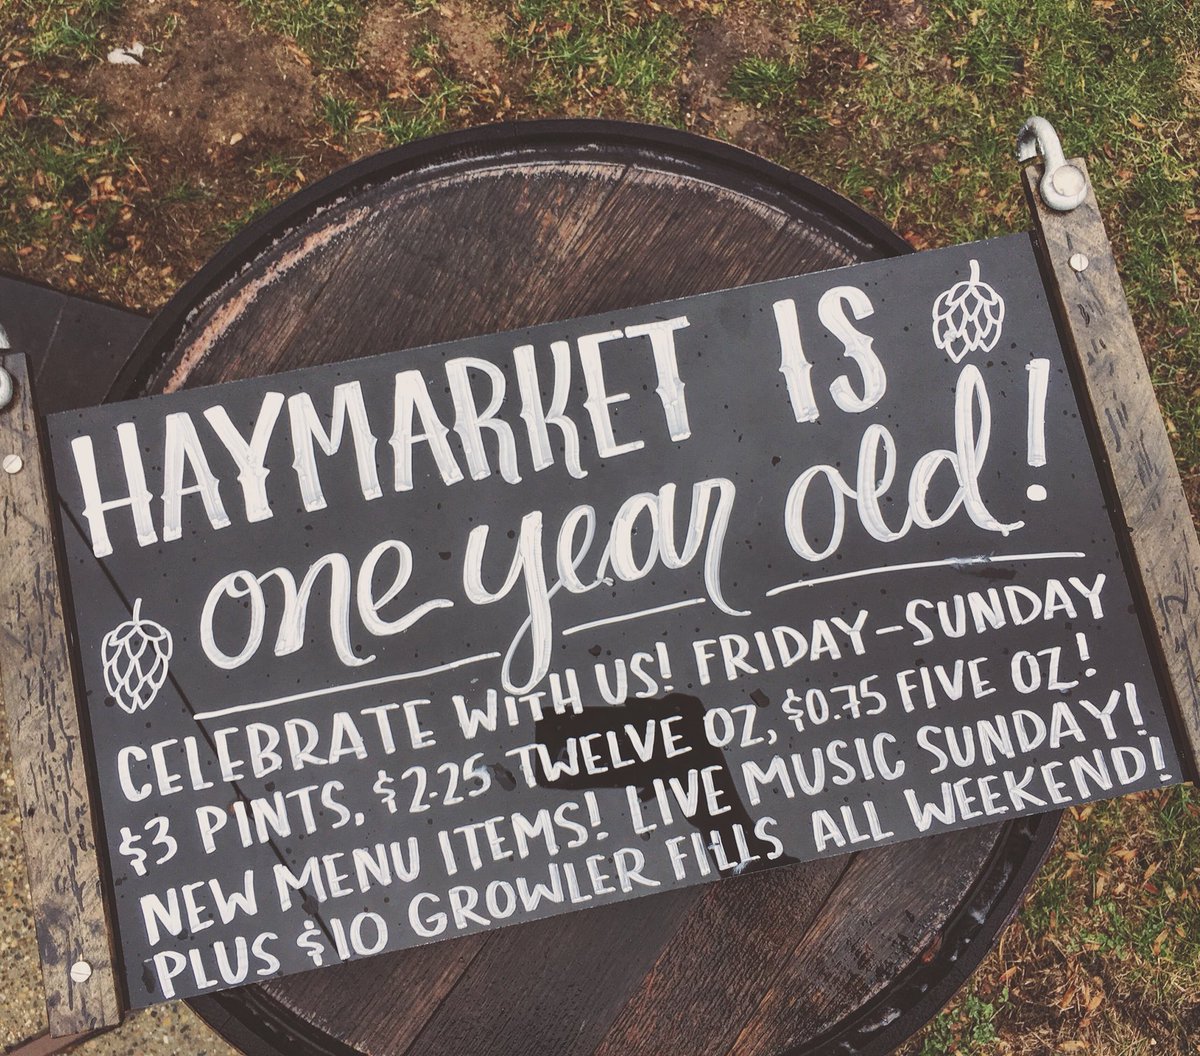 HAYMARKET IS
one year old!
CELEBRATE WITH US! FRIDAY-SUNDAY
$3 PINTS, $2.25 TWELVE OZ, $0.75 FIVE OZ!
NEW MENU ITEMS! LIVE MUSIC SUNDAY!
PLUS $10 GROWLER FILLS ALL WEEKEND!